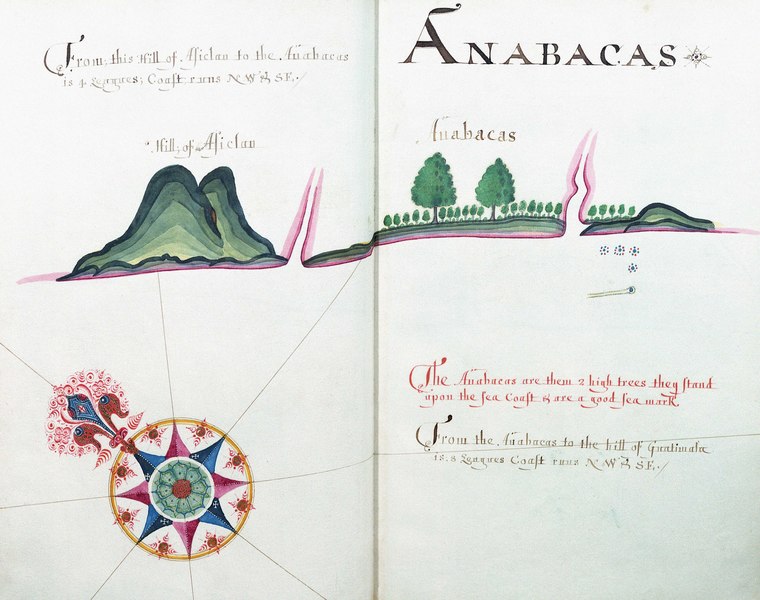 From this Hill of Asiclan to the Anabacas
is 4 Leagues; Coast runs N W & S E./
Hill of Asiclan
ANABACAS
Anabacas
The Anabacas are them 2 high trees they stand
upon the sea Coast & are a good sea mark
From the Anabacas to the hill of Guatimala
is 8 Leagues Coast runs N W & S E./